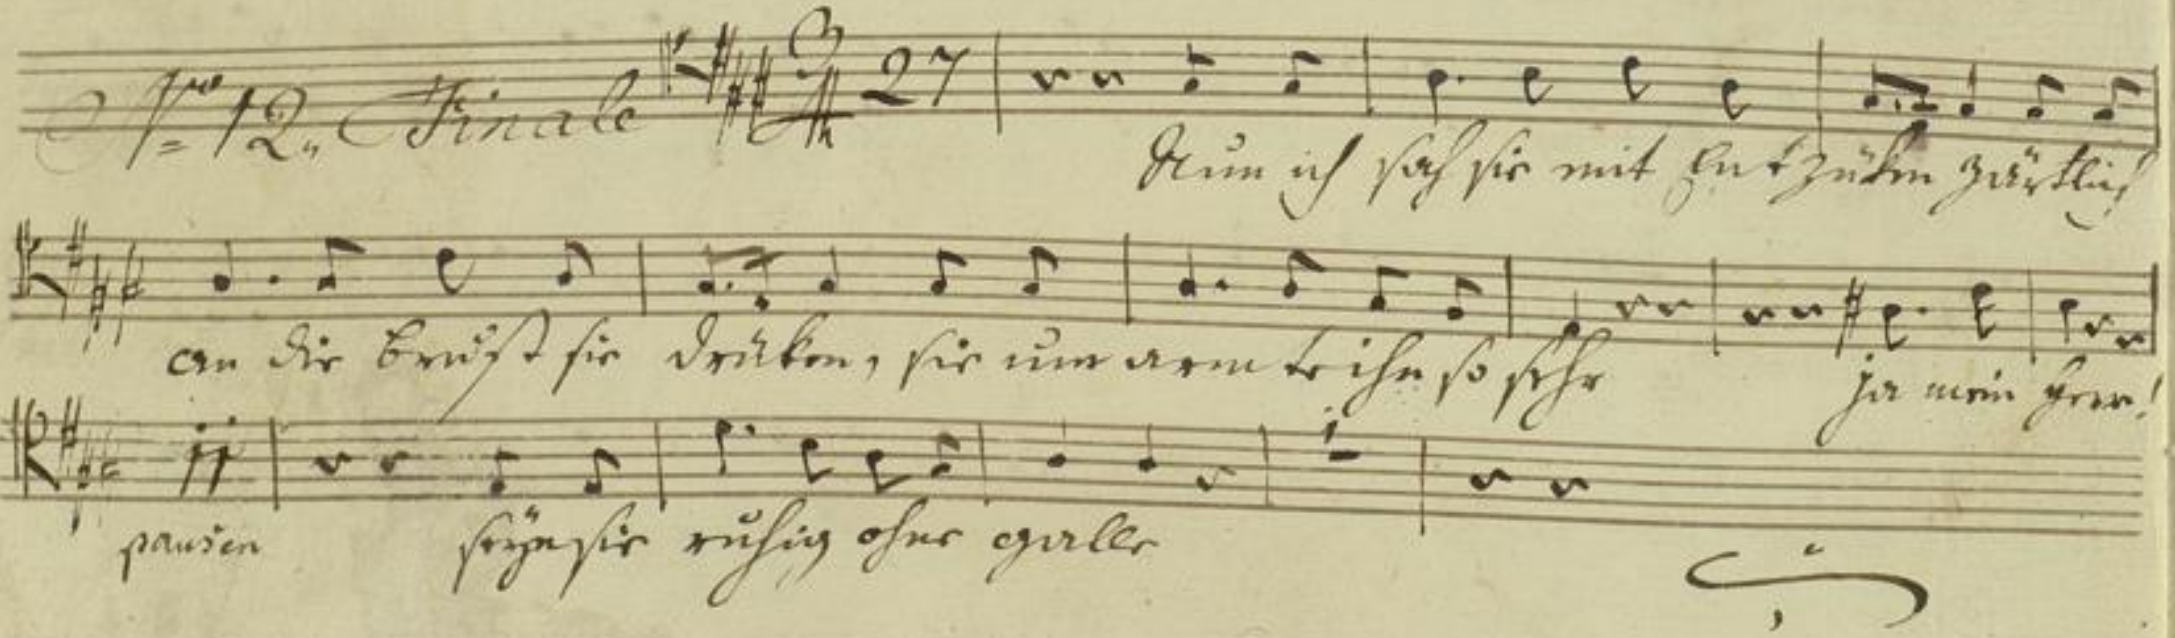 Nro 12. Finale 27
Nun ich sah sie mit Entzüken zärtlich
an die brust sie drüken, sie umarmte ihn so sehr ja mein herr!
pausen seÿn sie ruhig ohne galle